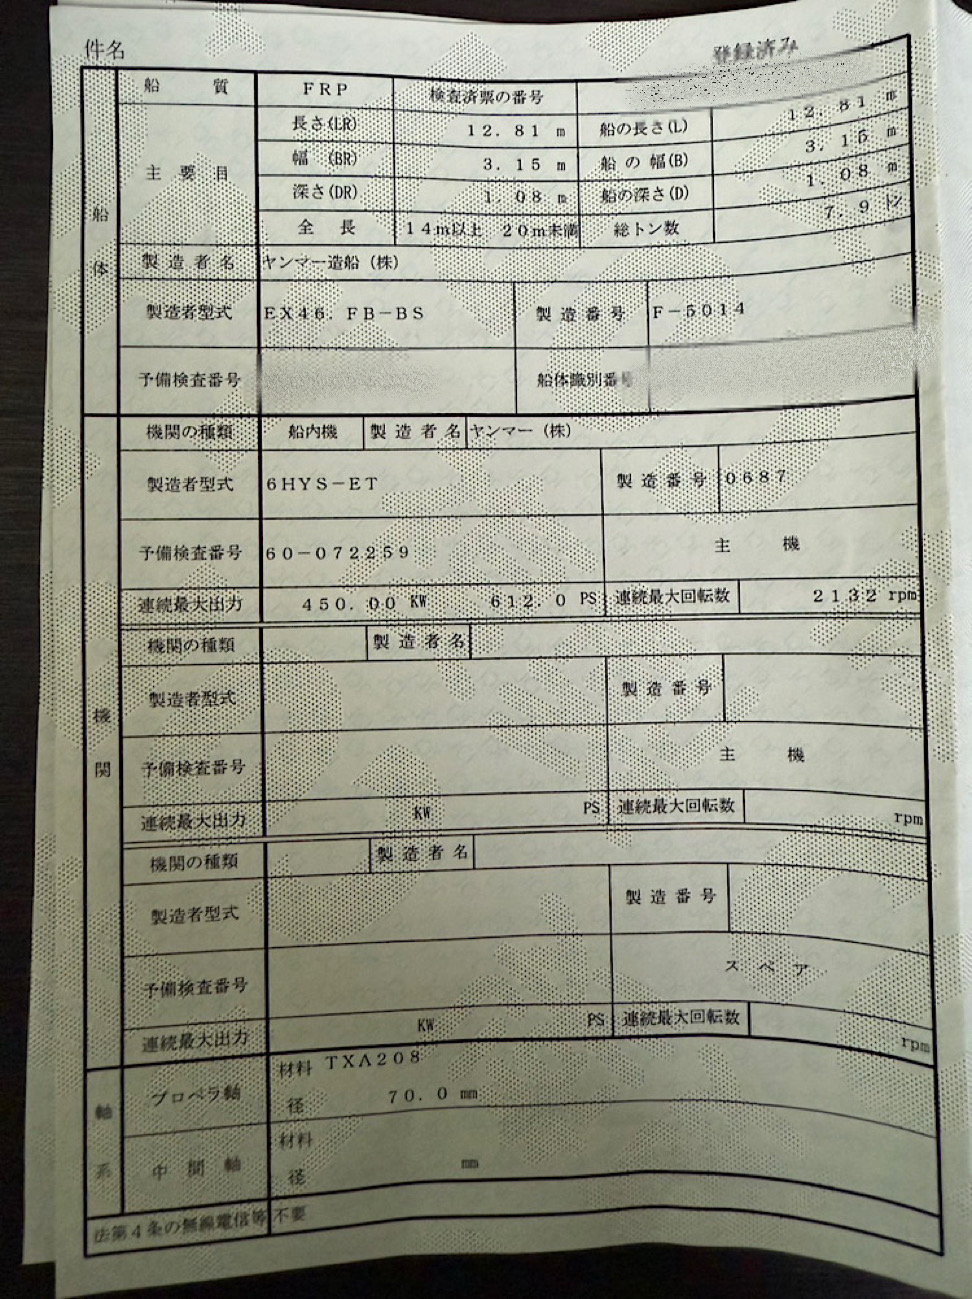 件名
登録済み
船質 FRP 検査済票の番号
主要目 長さ(LR) 12.81 m 船の長さ(L) 12.81 m
幅 (BR) 3.15 m 船の幅(B) 3.15 m
深さ(DR) 1.08 m 船の深さ(D) 1.08 m
全長 14m以上 20m未満 総トン数 7.9 トン
船体
製造者名 ヤンマー造船（株）
製造者型式 EX46．FB−BS 製造番号 F−5014
予備検査番号 船体識別番号
機関の種類 船内機 製造者名 ヤンマー（株）
製造者型式 6HYS−ET 製造番号 0687
予備検査番号 60−072259 主機
連続最大出力 450.00 KW 612.0 PS 連続最大回転数 2132 rpm
機関
機関の種類 製造者名
製造者型式 製造番号
予備検査番号 主機
連続最大出力 KW PS 連続最大回転数 rpm
機関の種類 製造者名
製造者型式 製造番号
予備検査番号 スペア
連続最大出力 KW PS 連続最大回転数 rpm
軸系
プロペラ軸 材料 TXA208
径 70.0 mm
中間軸 材料
径 mm
法第4条の無線電信等 不要